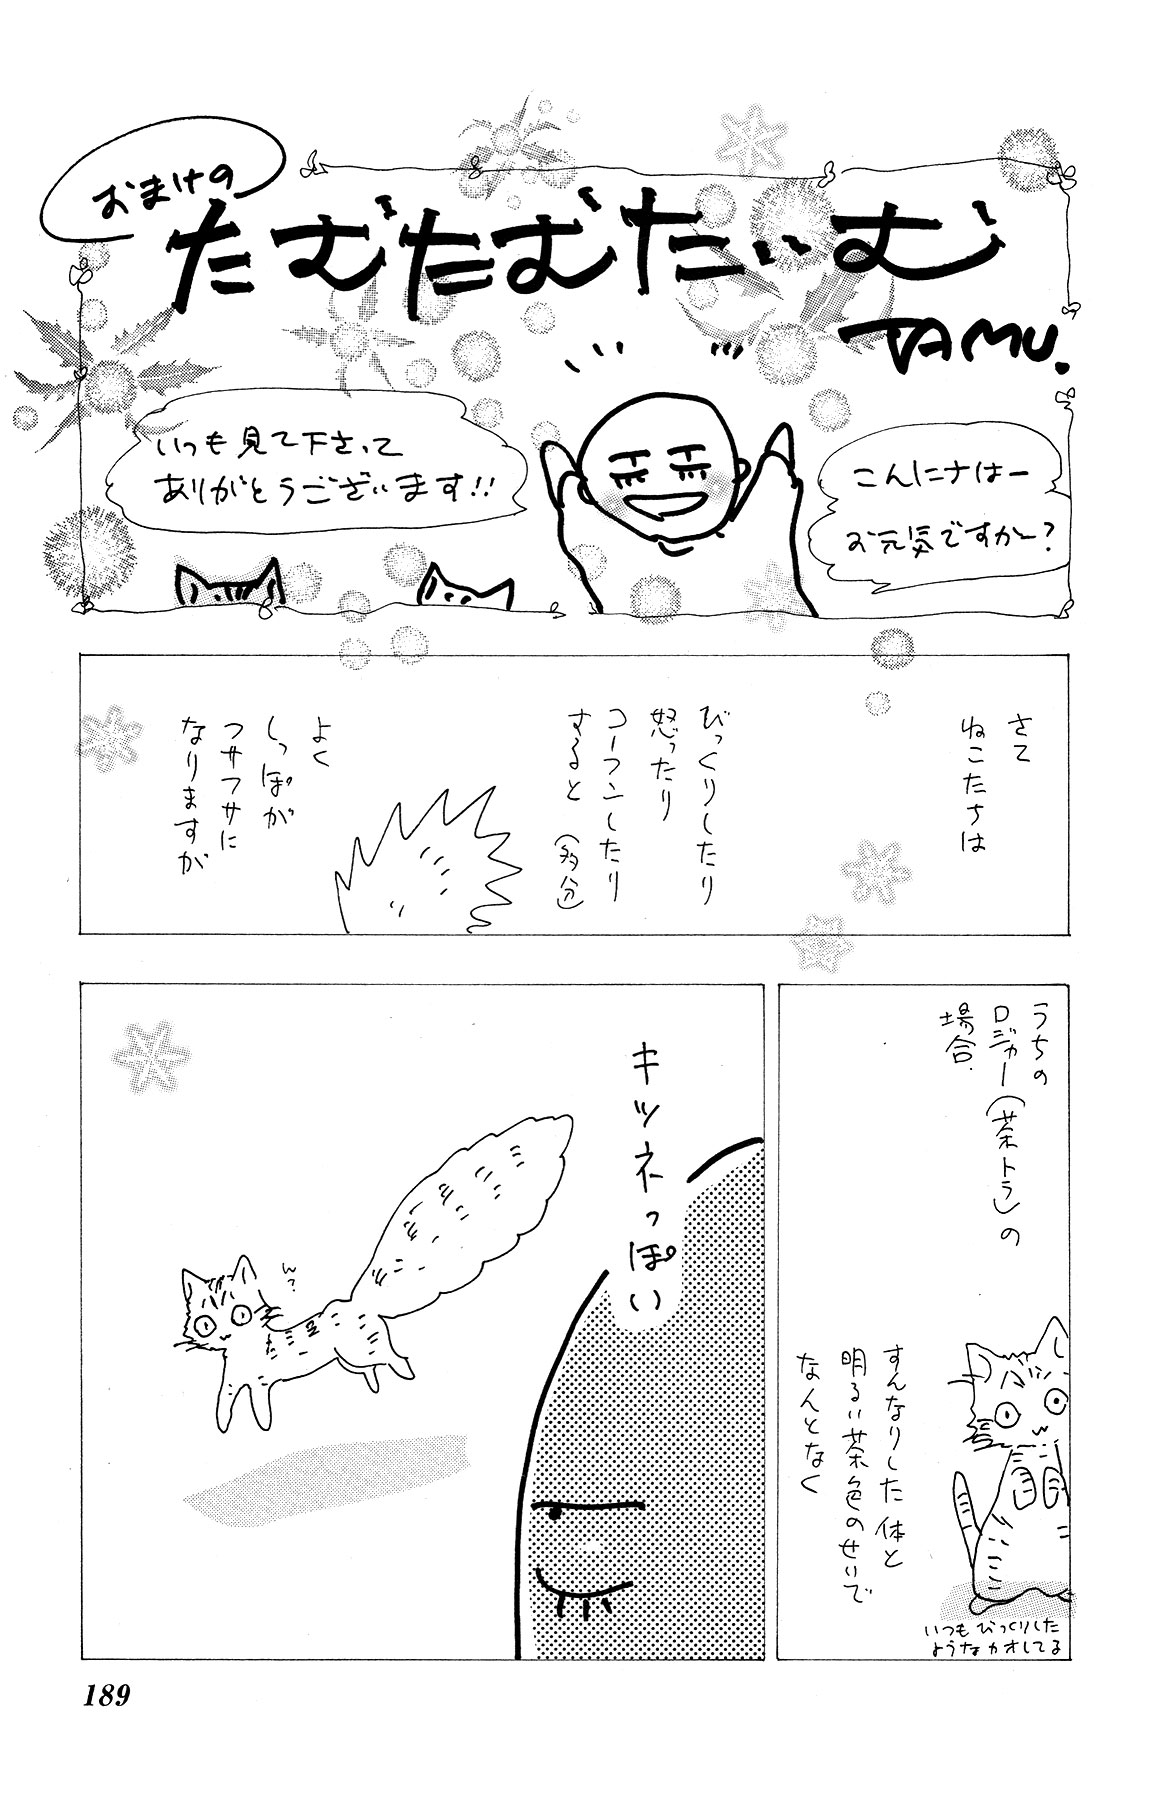 おまけの
たむたむたいむ
TAMU.
こんにチはー
お元気ですかー？
いつも見て下さって
ありがとうございます!!
さて
ねこたちは
びっくりしたり
怒ったり
コーフンしたり
すると（多分）
よく
しっぽが
フサフサに
なりますが
うちの
ロジャー（茶トラ）の
場合.
すんなりした体と
明るい茶色のせいで
なんとなく
いつもびっくりした
ようなカオしてる
キツネっぽい
ん?
189